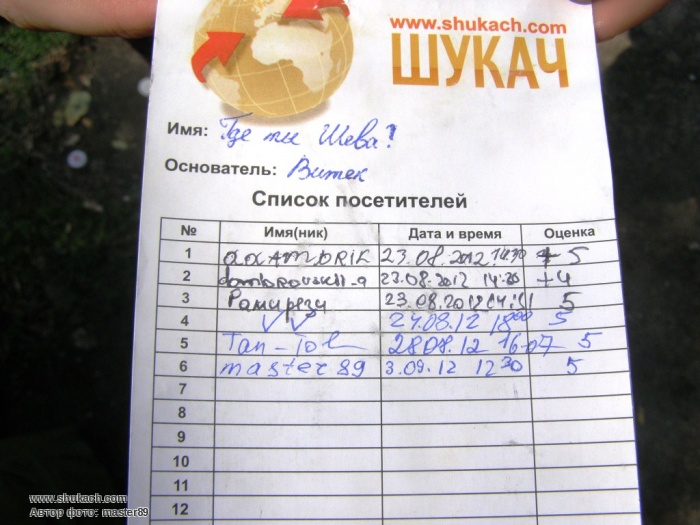 www.shukach.com
ШУКАЧ
Имя: Где ты Шева?
Основатель: Витек
Список посетителей
№ Имя(ник) Дата и время Оценка
1 23.08.2012 14:30 +5
2 dombrovskii_a 23.08.2012 +4
3 Рамирези 23.08.2012 5
4 24.08.12 1800 5
5 Tan-Tol 28.08.12 16-07 5
6 master89 3.09.12 1230 5
7
8
9
10
11
12
www.shukach.com
Автор фото: master89